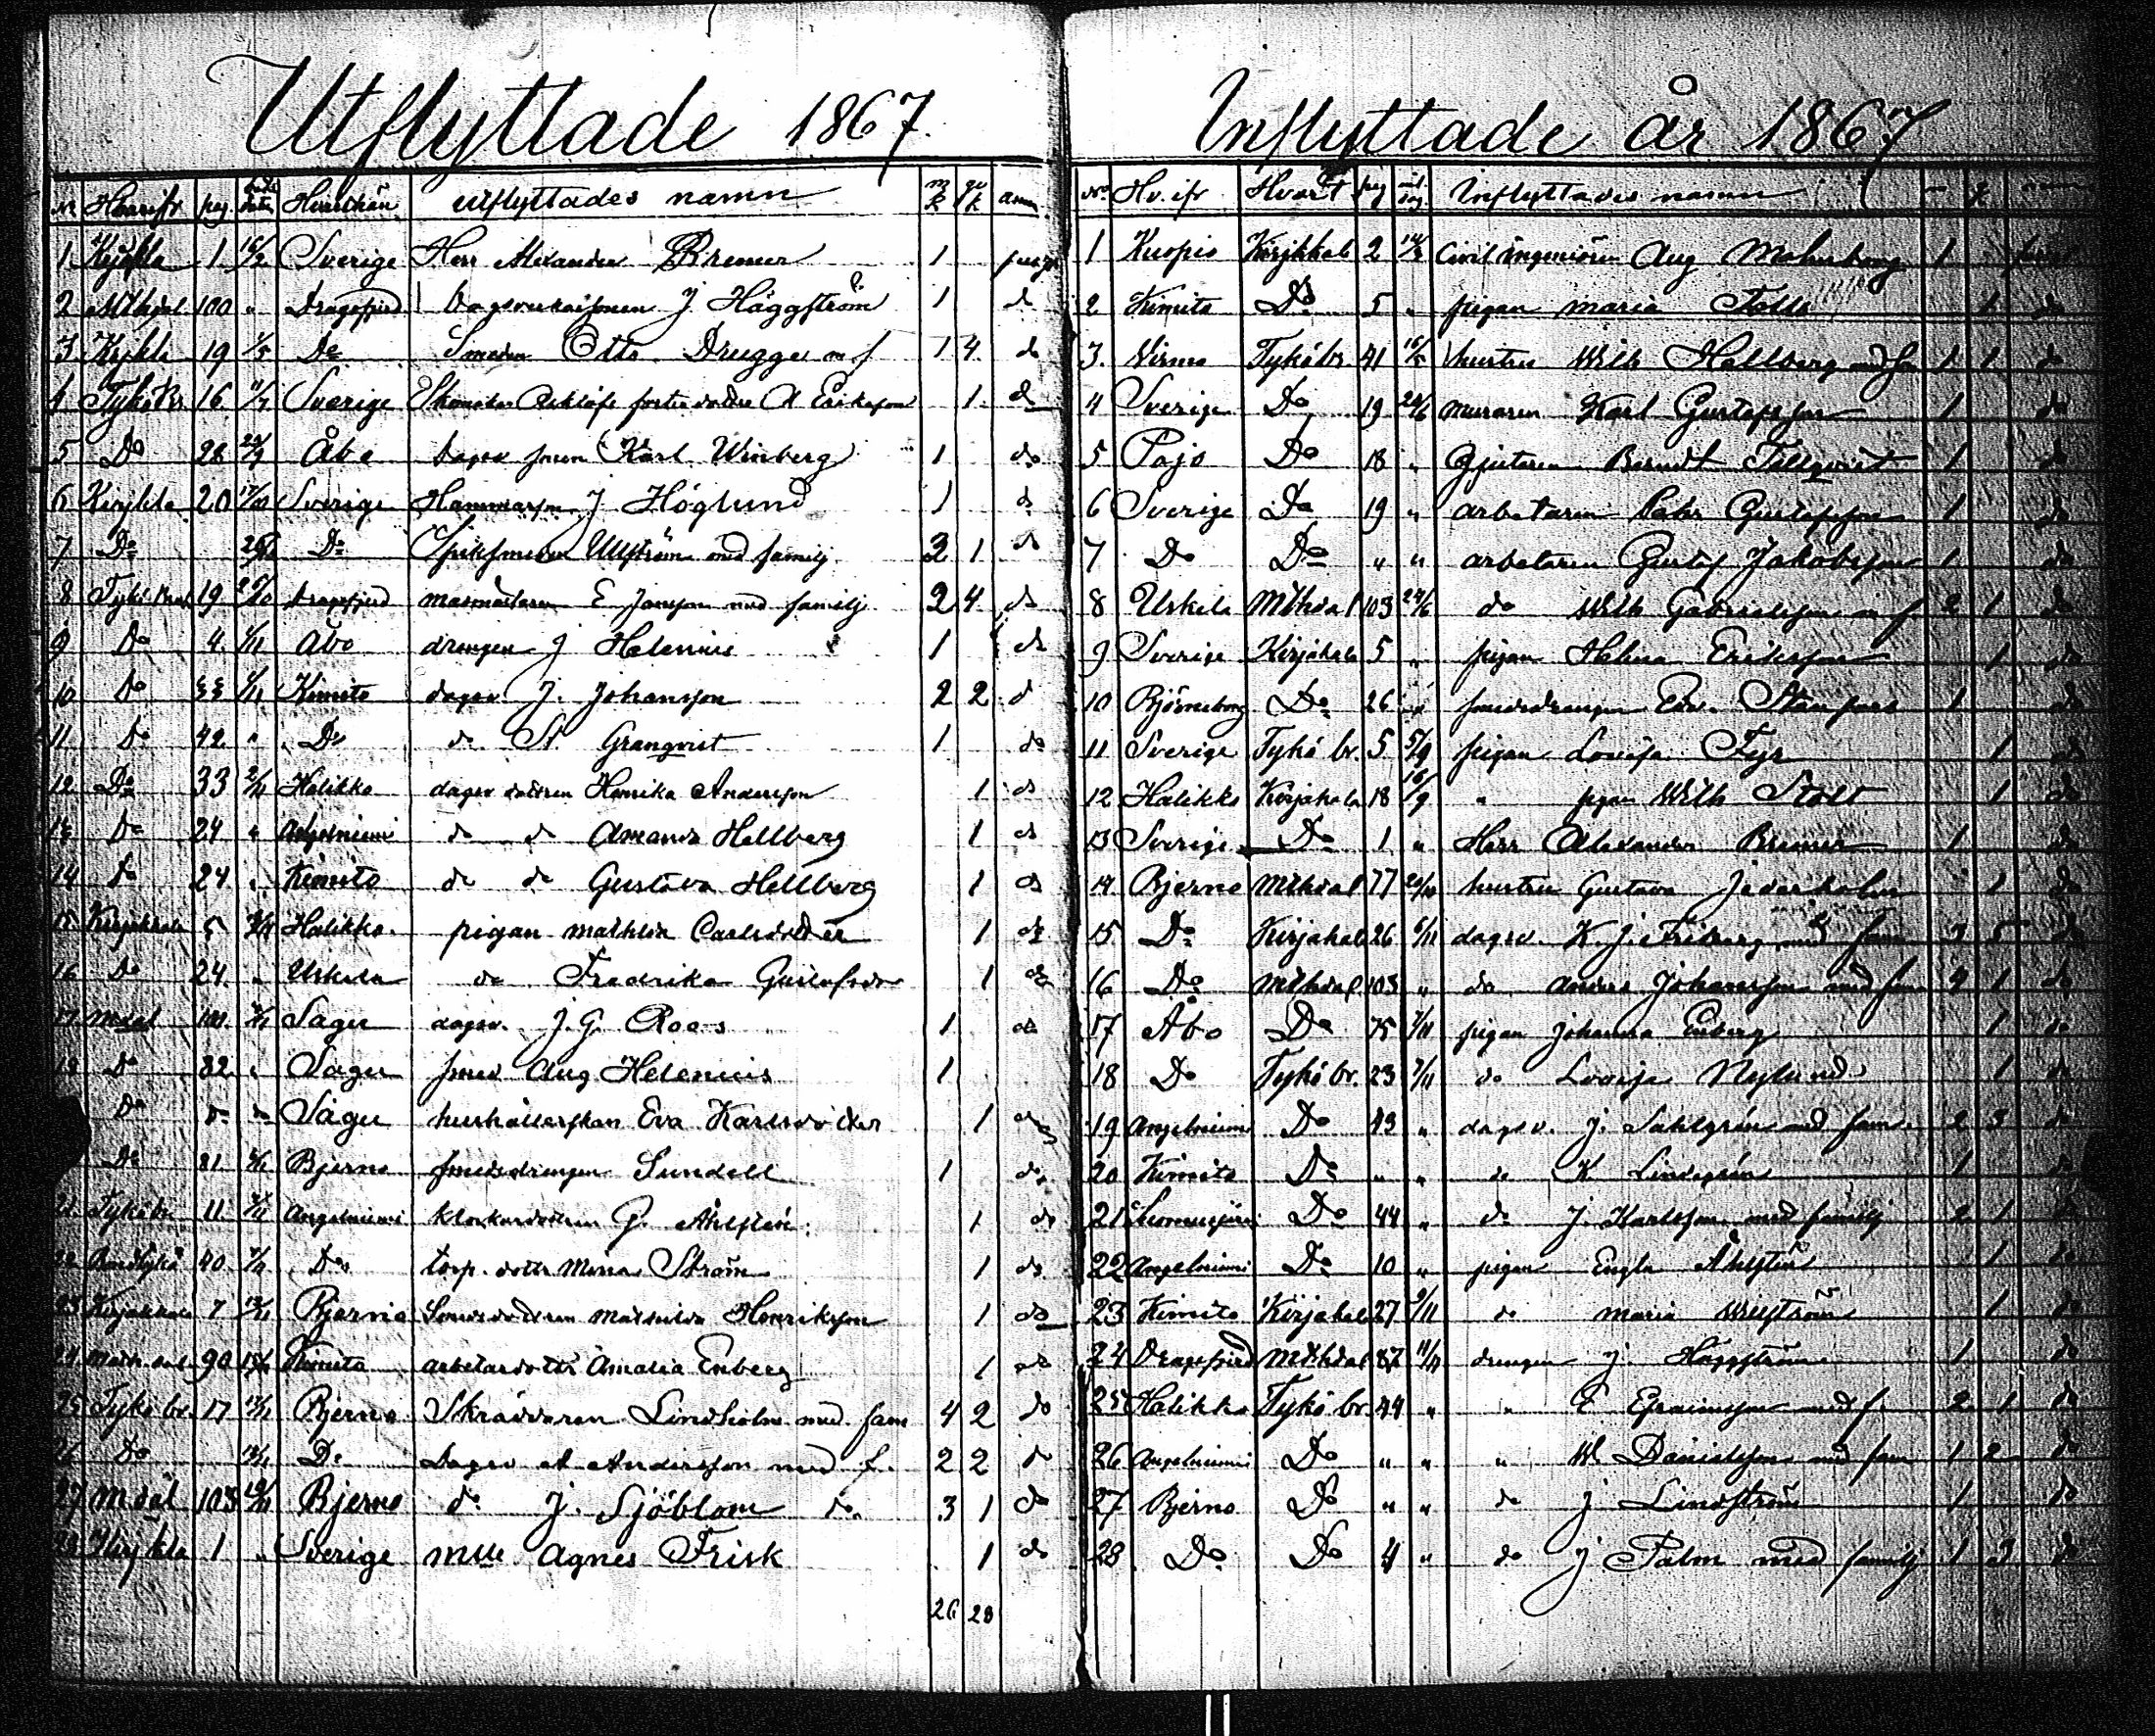 Utflyttade 1867.
N Hvarifr pag Hvarthän utflyttades namn m k qv k anm
1 Kirjkla 1 16/2 Sverige Herr Alexander Bremer 1
2 100 " Dragsfjerd J Häggström 1 do
3 Kirjkla 19 Do Smeden Otto Drugge m f 1 4 do
4 Tykö Br 16 Sverige A Eriksson 1 do
5 Do 28 Åbo Karl Winberg 1 do
6 Kirjkla 20 Sverige J Höglund 1 do
7 Do Do Spiksmeden Ullström med familj 3 1 do
8 Tykö 19 Dragsfjerd masmästaren E Jansson med familj 2 4 do
9 Do 4 Åbo drengen J Helenius 1 do
10 Do Kimito dagsv J. Johansson 2 2 do
11 Do 42 " Do do Granqvist 1 do
12 Do 33 Halikko dagsv dottren Henrika Andersson 1 do
13 Do 24 " Angelniemi do do Amanda Hellberg 1 do
14 Do 24 " Kimito do do Gustava Hellberg 1 do
15 Kirjakkala 5 Halikko pigan Mathilda Carlsdotter 1 do
16 Do 24 " Uskela do Fredrika Gustafsdr 1 do
17 Mdal Sagu dagsv. J. G. Roos 1 do
18 Do 82 " Sagu smed Aug Helenius 1
Do Sagu hushållerskan Eva Karlsdotter 1 do
Do 81 Bjerno smedsdrengen Sundell 1 do
21 Tykö br 11 Angelniemi Klockardottren G. Åhlsten 1 do
22 40 Do torp. dottr Mina Ström 1 do
23 Kirjakkala 7 Bjerno Mathilda Henriksson 1 do
24 90 Kimito arbetardottr Amalia Enberg 1 do
25 Tykö br. 17 Bjerno Skräddaren Lindholm med fam 4 2 do
26 Do Do Dagsv A Andersson med f. 2 2 do
27 Mdal 103 Bjerno do J. Sjöblom do 3 1 do
28 Kirjkla 1 " Sverige Mlle Agnes Frisk 1 do
26 28
Inflyttade år 1867
No Hv. ifr Hvart pag Inflyttades namn
1 Kuopio Kirjkkala 2 Civil ingeniören Aug 1
2 Kimito Do 5 " pigan Maria 1 do
3. Tykö br. 41 hustru Wilh Hellberg 1 1 do
4 Sverige Do 19 24/6 muraren Karl Gustafsson 1 do
5 Pojo Do 18 " Gjutaren Berndt Fellqvist 1 do
6 Sverige Do 19 " arbetaren Gustafsson 1 do
7 Do Do " " arbetaren Gustaf Jakobsson 1 do
8 Uskela Mthdal 103 24/6 do Wilh Gabrielsson m f 2 1 do
9 Sverige Kirjakala 5 " pigan Helena Eriksson 1 do
10 Björneborg Do 26 " smedsdrengen Edv. 1 do
11 Sverige Tykö br. 5 5/9 pigan Lovisa Fyr 1 do
12 Halikko Kirjakala 18 16/9 " pigan Wilh Stolt 1 do
13 Sverige Do 1 " Herr Alexander Bremer 1 do
14 Bjerno Mthdal 77 hustru Gustava Jederholm 1 do
15 Do Kirjakal 26 6/11 dagsv. K. J. Friberg med fam 3 5 do
16 Do Mthdal 103 " do Anders Johansson med fam 4 1 do
17 Åbo Do 75 7/11 pigan Johanna Enberg 1 do
18 Do Tykö br. 23 7/11 do Lovisa Nylund 1 do
19 Angelniemi Do 43 " dagsv. J. Sahlgrén med fam. 2 3 do
20 Kimito Do " " do K Lindgrén 1 do
21 Do 44 " do J. Karlsson med familj 2 1 do
22 Angelniemi Do 10 " pigan Engla Åhlsten 1 do
23 Kimito Kirjakal 27 9/11 do Maria 1 do
24 Dragsfjerd Mthdal 87 11/11 drengen J. Häggström 1 do
25 Halikko Tykö br 44 " " E Efraimsson med f. 2 1 do
26 Angelniemi Do " " " W Danielsson med fam 1 2 do
27 Bjerno Do " " do J Lindström 1 do
28 Do Do 4 " do J Palm med familj 1 3 do